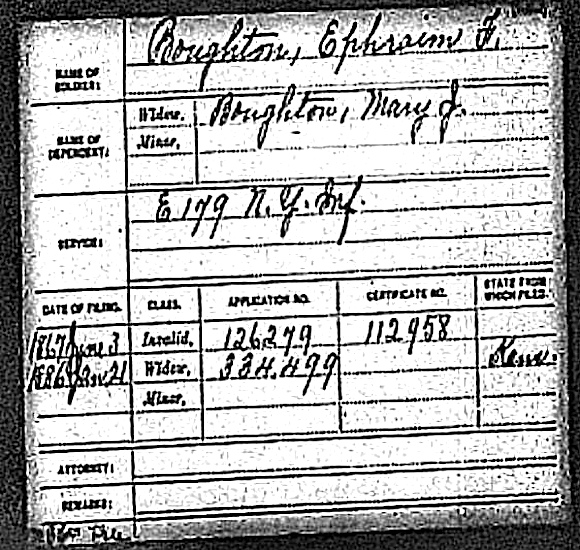 NAME OF SOLDIER: Boughton, Ephraim F.
NAME OF DEPENDENT: Widow, Boughton, Mary J.
Minor,
SERVICE: E 179 N.Y. Inf.
DATE OF FILING. CLASS. APPLICATION NO. CERTIFICATE NO. STATE FROM WHICH FILED.
1867 June 3 Invalid, 126279 112958
1886 Widow, 334.499
Minor,
ATTORNEY:
REMARKS: